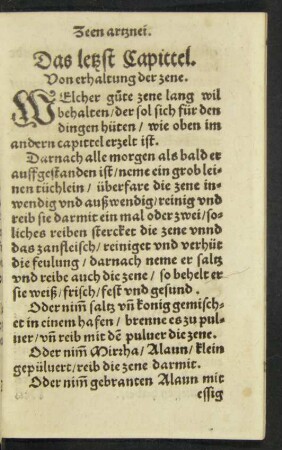 Zeen artznei.
Das letzst Capittel.
Von erhaltung der zene.
WElcher gůte zene lang wil
behalten/der sol sich für den
dingen hüten/ wie oben im
andern capittel erzelt ist.
Darnach alle morgen als bald er
auffgestanden ist/neme ein grob lei-
nen tüchlein/ überfare die zene in-
wendig vnd außwendig/reinig vnd
reib sie darmit ein mal oder zwei/so-
liches reiben stercket die zene vnnd
das zanfleisch/ reiniget vnd verhüt
die feulung/ darnach neme er saltz
vnd reibe auch die zene/ so behelt er
sie weiß/frisch/fest vnd gesund.
Oder nim̃ saltz vñ honig gemisch-
et in einem hafen/ brenne es zu pul-
uer/vñ reib mit dē puluer die zene.
Oder nim̃ Mirrha/ Alaun/klein
gepüluert/reib die zene darmit.
Oder nim̃ gebranten Alaun mit
essig